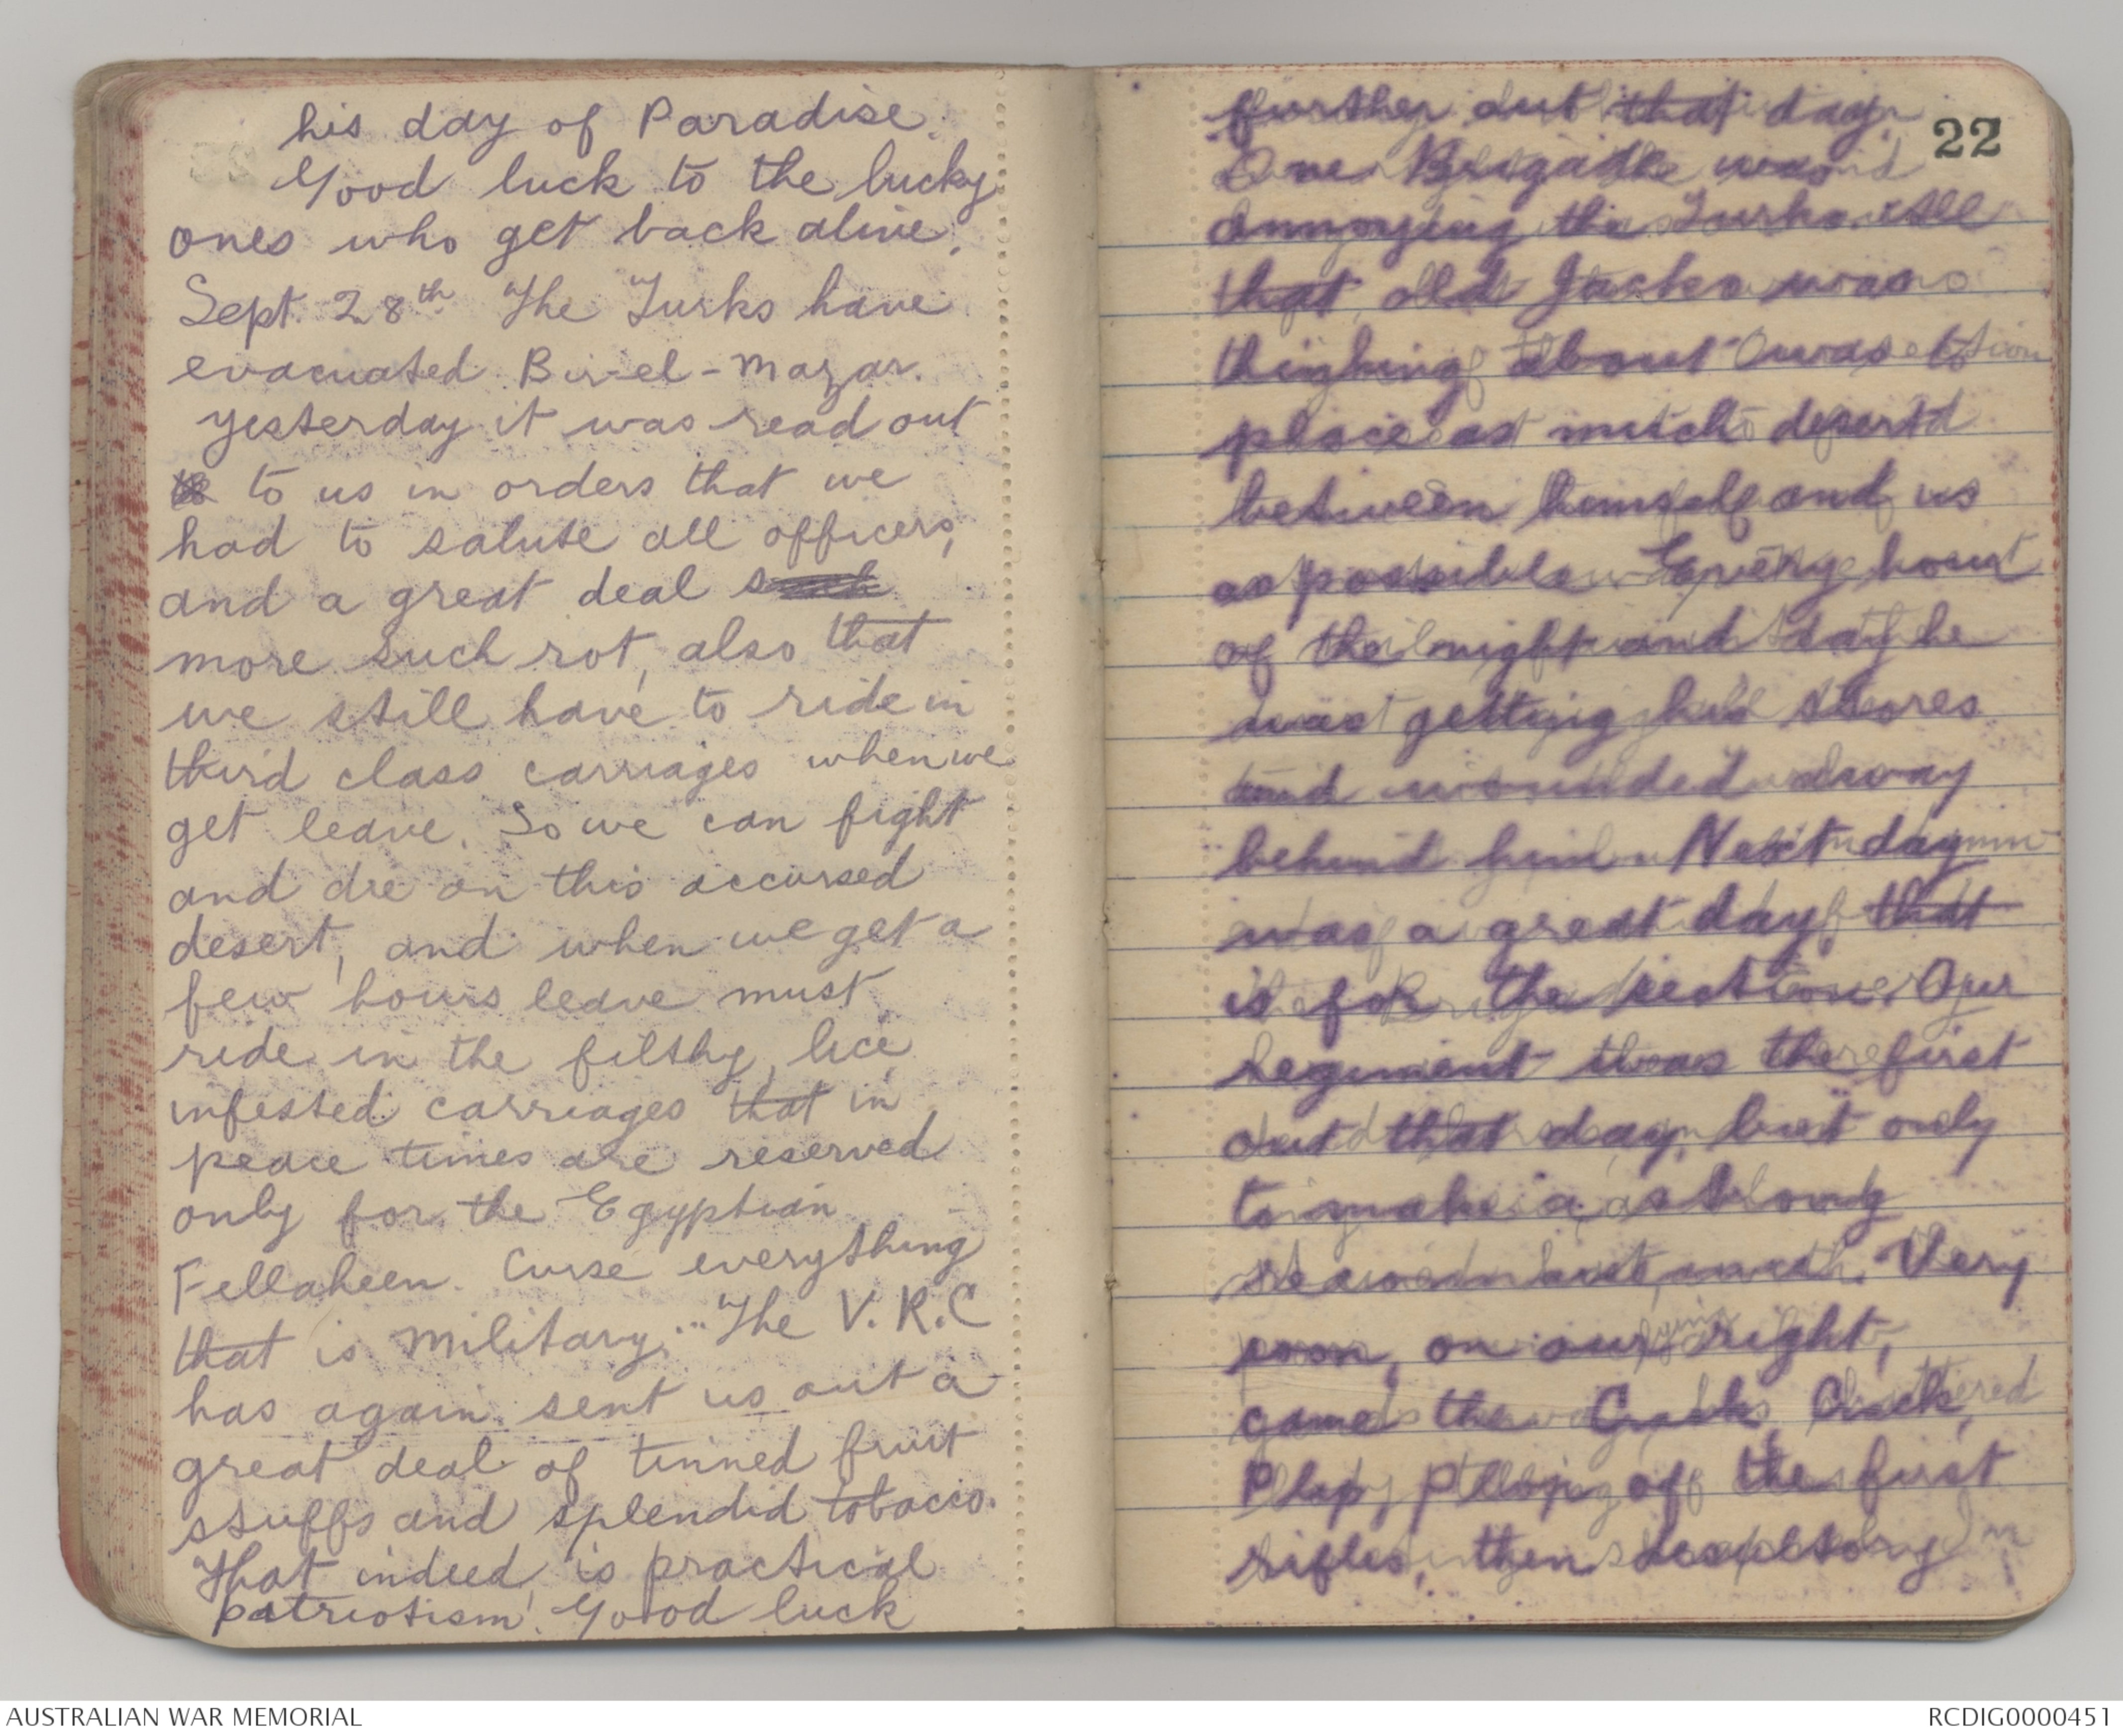 his day of Paradise.
Good luck to the lucky
ones who get back alive.
Sept. 28th The Turks have
evacuated Bir-el-Mazar.
yesterday it was read out
to us in orders that we
had to salute all officers,
and a great deal
more such rot, also that
we still have to ride in
third class carriages when we
get leave. So we can fight
and die on this accursed
desert, and when we get a
few hours leave must
ride in the filthy, lice
infested carriages that in
peace times are reserved
only for the Egyptian
Fellaheen. Curse everything
that is military. The V.R.C
has again sent us out a
great deal of tinned fruit
stuffs and splendid tobacco.
That indeed, is practical
patriotism! Good luck
22
further out that day.
One Brigade was
annoying the Turks. All
that old Jacko was
thinking about was to
place as much desert
between himself and us
as possible. Every hour
of the night and day he
was getting his stores
and wounded away
behind him. Next day
was a great day, that
is for the section. Our
Regiment was the first
out that day, but only
to make a strong
reconnaissance. Very
soon, on our right,
came the Crack, Crack,
Plop, Plop, of the first
rifles, then desultory
AUSTRALIAN WAR MEMORIAL
RCDIG0000451